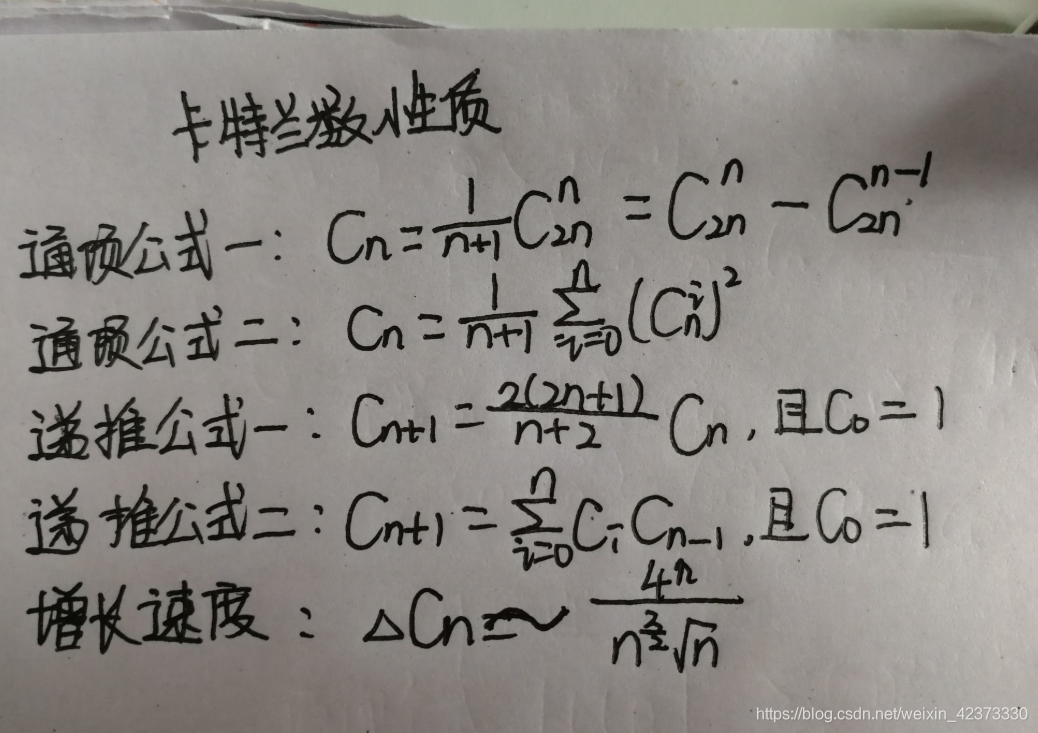 卡特兰数性质
通项公式一: Cn = \frac{1}{n+1} C_{2n}^{n} = C_{2n}^{n} - C_{2n}^{n-1}
通项公式二: Cn = \frac{1}{n+1} \sum_{i=0}^{n} (C_n^i)^2
递推公式一: C_{n+1} = \frac{2(2n+1)}{n+2} C_n, 且C_0 = 1
递推公式二: C_{n+1} = \sum_{i=0}^{n} C_i C_{n-1}, 且C_0 = 1
增长速度: △C_n =~ \frac{4^n}{n^{\frac{3}{2}} \sqrt{n}}
https://blog.csdn.net/weixin_42373330